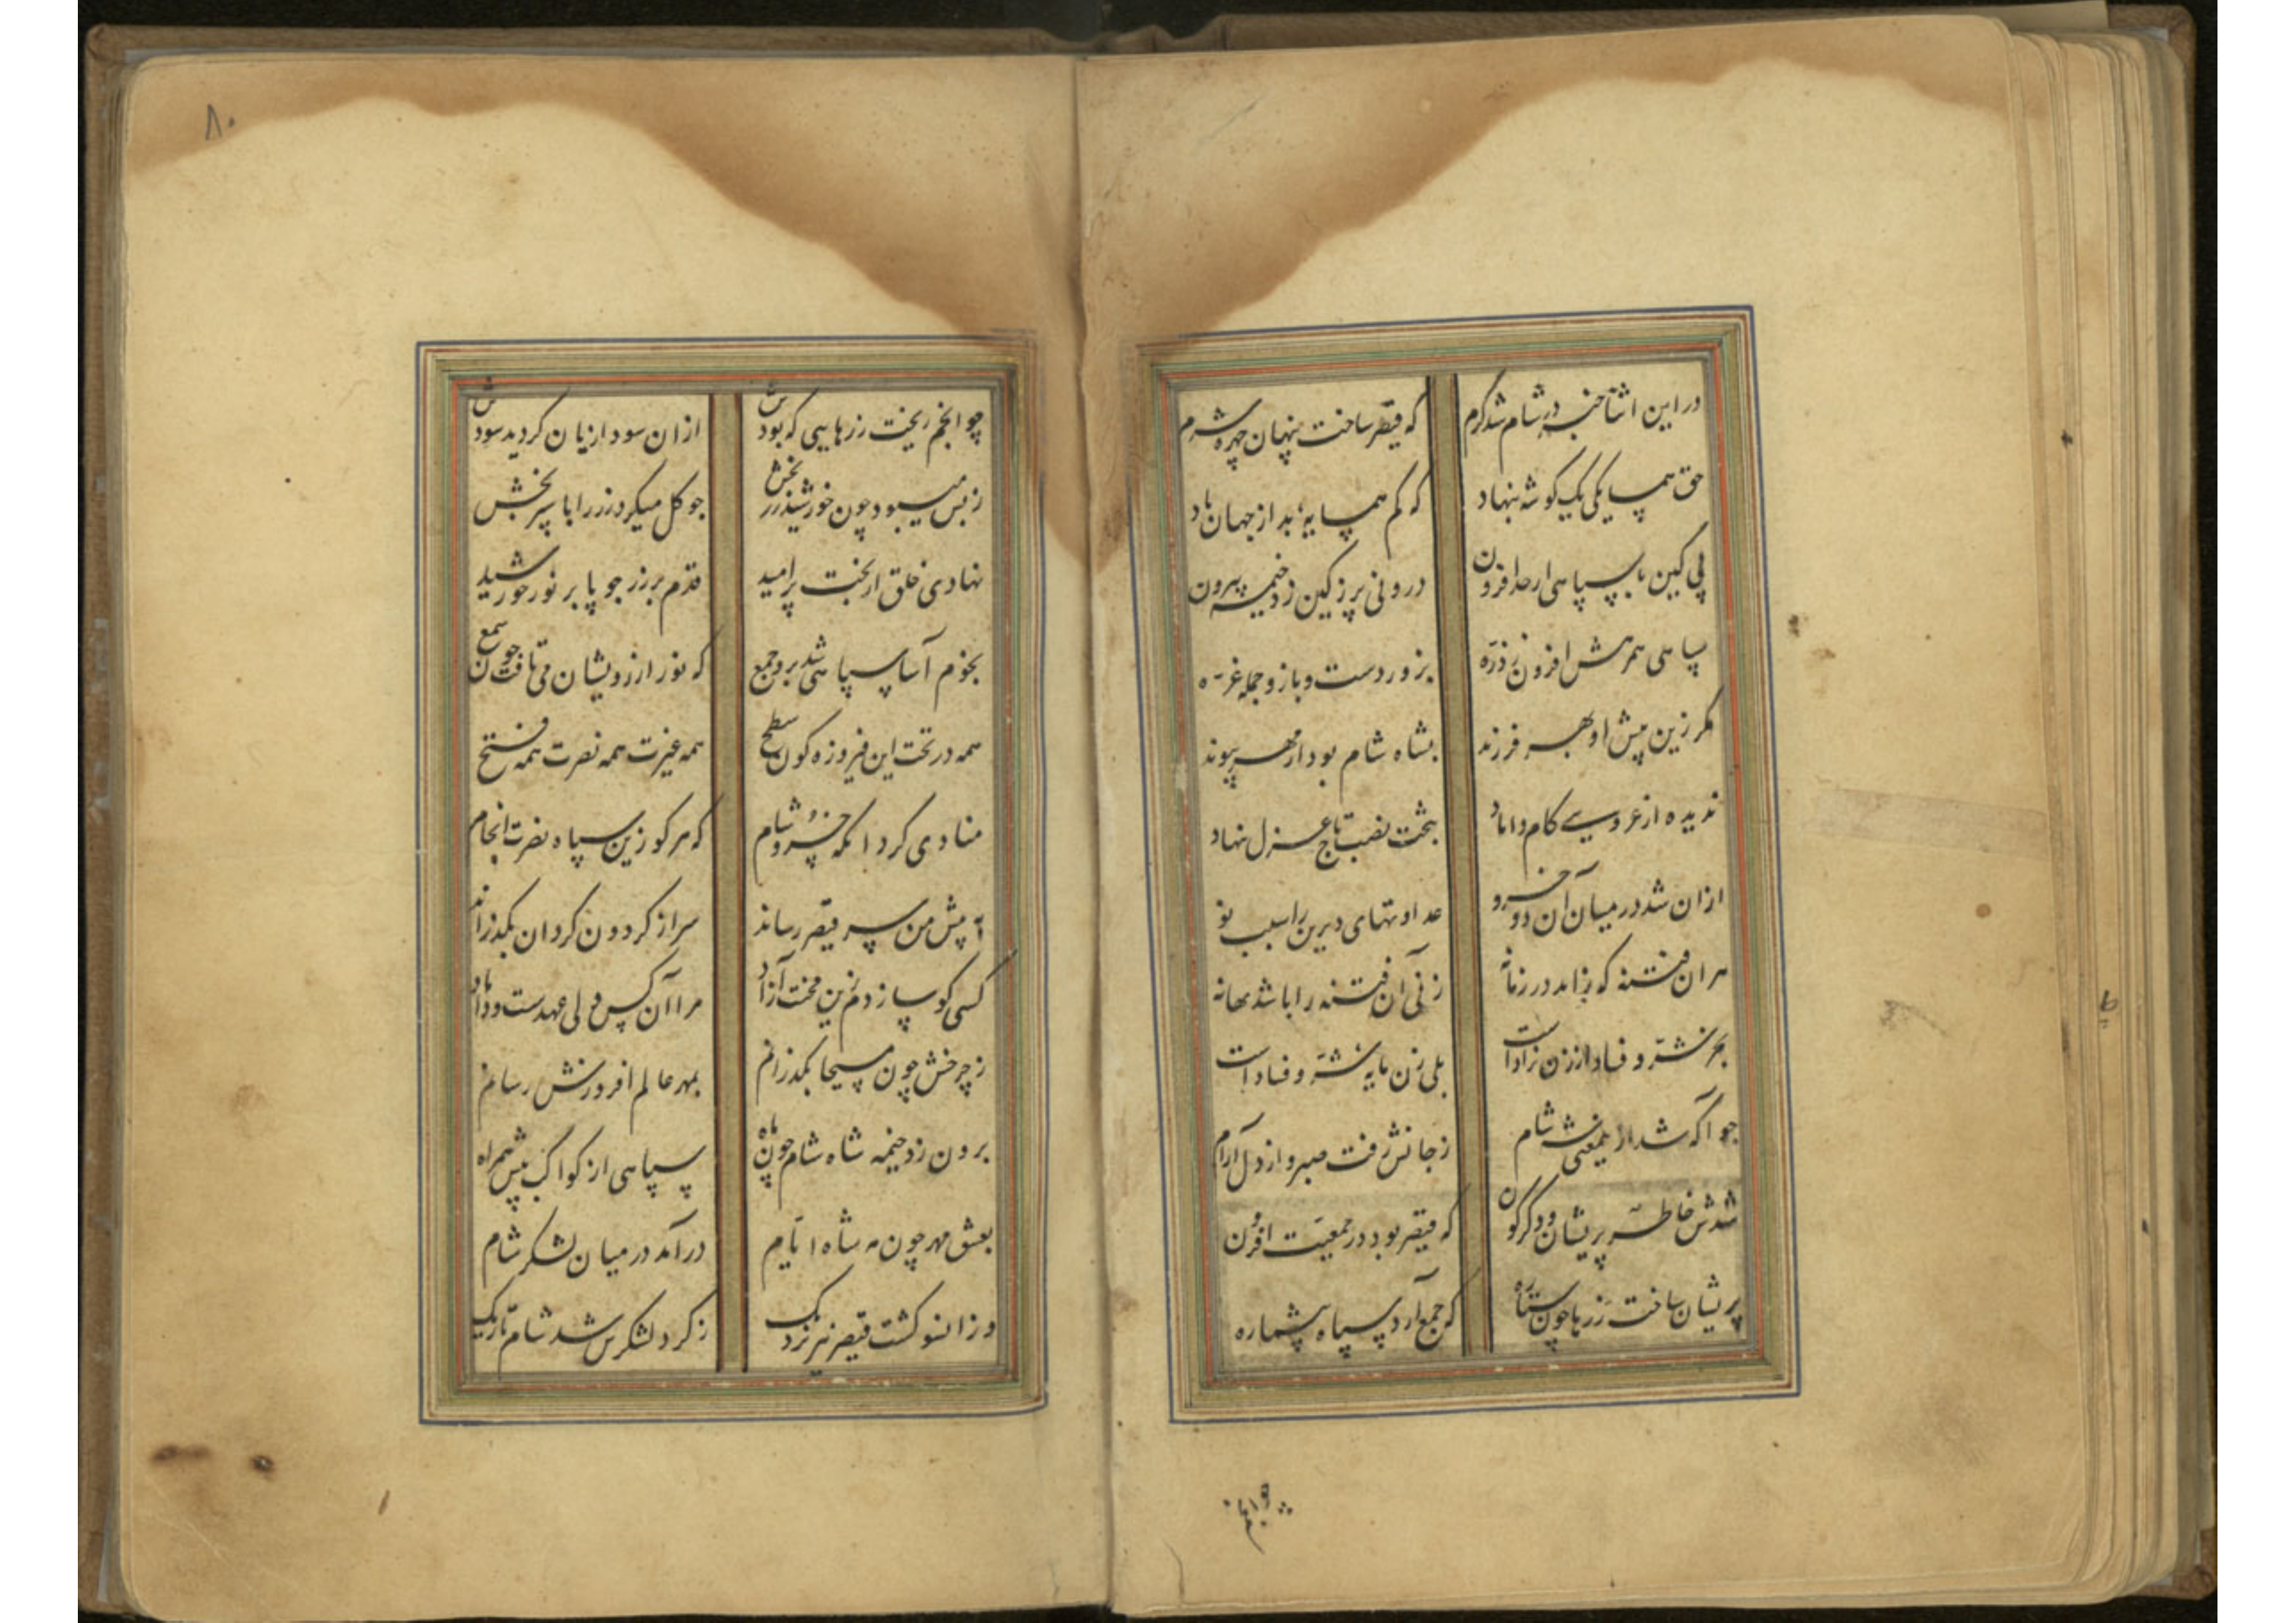 در این اثنا خبر در شام شد گرم که قیصر ساخت پنهان چهره شرم
حق همسایکی یک کوشه بنهاد که کم همسایهٔ بد از جهان باد
پی کین با سپاهی از حد افزون درونی پر ز کین زد خیمه بیرون
سپاهی همرهش افزون ز ذره بزور دست و بازو جمله غره
مکر زین پیش او بهر فرزند بشاه شام بود از مهر پیوند
ندیده از عروسی کام داماد بتخت نصب تاج عزل نهاد
ازان شد در میان آن دو خسرو عداوتهای دیرین را سبب نو
هران فتنه که زاید در زمانه زنی آن فتنه را باشد بهانه
بجز شر و فساد از زن نزاد است بلی زن مایه شر و فساد است
جو آکه شد ازین معنی شه شام ز جانش رفت صبر و از دل آرام
شدش خاطر پریشان و دکرکون که قیصر بود در جمعیت افزون
پریشان ساخت زرها چون ستاره که جمع آرد سپاه بیشماره
چو انجم
۸۰
چو انجم ریخت زرهایی که بودش ازان سودا زیان کردید سودش
ز بس میبود چون خورشید زربخش جو کل میکرد زر را با سپر بخش
نهادی خلق از بخت پر امید قدم بر زر جو پا بر نور خورشید
بخوم آسا سپاهی شد برو جمع که نور از رویشان می تافت چون شمع
همه در تحت این فیروزه کون سطح همه غیرت همه نصرت همه فتح
منادی کرد انکه خسرو شام که هر کو زین سپاه نصرت انجام
به پیش من سر قیصر رساند سر از کردون کردان بکذراند
کسی کو سازدم زین محنت آزاد مرا آن کس ولی عهدست و داماد
ز چرخش چون مسیحا بکذرانم بمهر عالم افروزش رسانم
برون زد خیمه شاه شام چون ماه سپاهی از کواکب بیش همراه
بعشق مهر چون مه شاه ایام درآمد در میان لشکر شام
وزانسو کشت قیصر نیز نزدیک ز کرد لشکرش شد شام تاریک